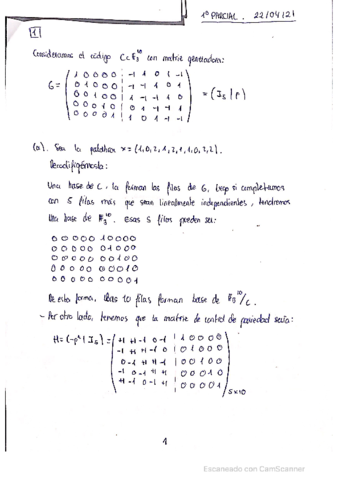 1º PARCIAL. 22/04/21
1
Consideramos el código C⊂F₃¹⁰ con matriz generadora:
1 0 0 0 0 -1 1 0 1 -1
0 1 0 0 0 -1 -1 1 0 1
G = 0 0 1 0 0 1 -1 -1 1 0 = (I₅ | P)
0 0 0 1 0 0 1 -1 -1 1
0 0 0 0 1 1 0 1 -1 -1
(a). Sea la palabra x = (1,0,2,1,2,1,1,0,2,2).
Decodifiquémosla:
Una base de C, la forman las filas de G, si completamos
con 5 filas más que sean linealmente independientes, tendremos
una base de F₃¹⁰. Esas 5 filas pueden ser:
0 0 0 0 0 1 0 0 0 0
0 0 0 0 0 0 1 0 0 0
0 0 0 0 0 0 0 1 0 0
0 0 0 0 0 0 0 0 1 0
0 0 0 0 0 0 0 0 0 1
De esta forma, 10 filas forman base de F₃¹⁰/C.
- Por otro lado, tenemos que la matriz de control de paridad sería:
+1 +1 -1 0 -1 1 0 0 0 0
-1 +1 +1 -1 0 0 1 0 0 0
H = (-Pᵗ | I₅) = 0 -1 +1 +1 -1 0 0 1 0 0
-1 0 -1 +1 +1 0 0 0 1 0
+1 -1 0 -1 +1 0 0 0 0 1 5×10
1
Escaneado con CamScanner